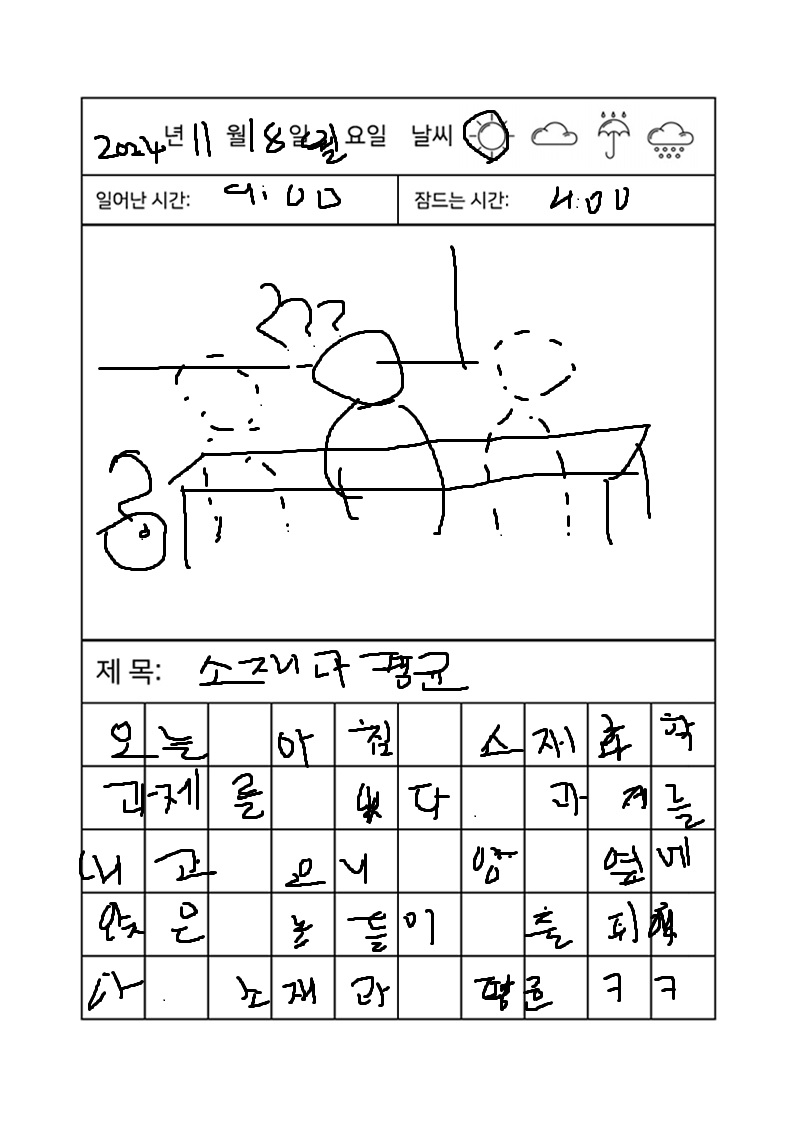 2024년 11월 18일 월요일 날씨
일어난 시간: 9:00 잠드는 시간: 4:00
???
제 목: 소재과 평균
오늘 아침 소재화학
과제를 냈다 과제를
내고 오니 양 옆에
앉은 놈들이 출튀했
다. 소재과 평균 ㅋㅋ